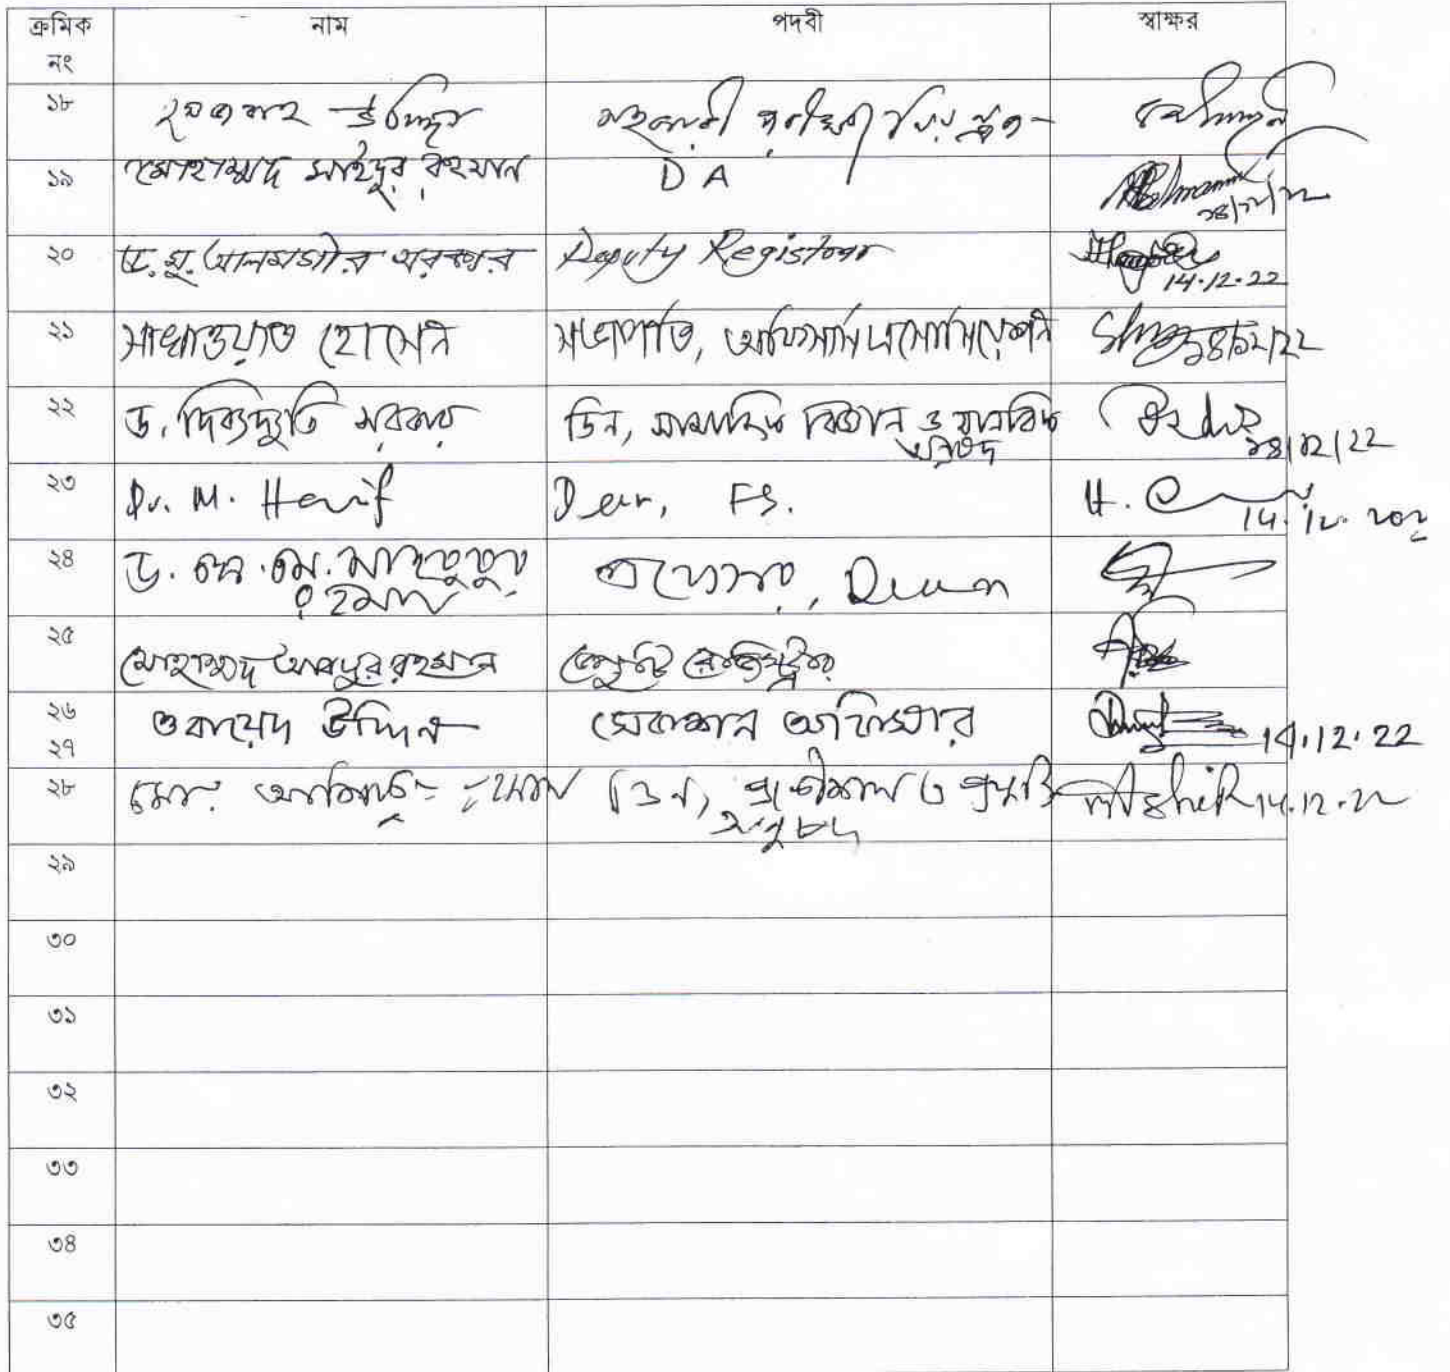 ক্রমিক নং নাম পদবী স্বাক্ষর
১৮ উদ্দিন সহকারী পরীক্ষা নিয়ন্ত্রক
১৯ মোহাম্মদ সাইদুর রহমান DA
২০ ড. মু. আলমগীর সরকার Deputy Registrar 14.12.22
২১ সাখাওয়াত হোসেন সভাপতি, অফিসার্স এসোসিয়েশন ১৪/১২/22
২২ ড. দিব্যদ্যুতি সরকার ডিন, সামাজিক বিজ্ঞান ও মানবিক অনুষদ ১৪/১২/22
২৩ Dr. M. Hanif Dean, FS. 14.12.2022
২৪ ড. এস. এম. মাহবুবুর রহমান প্রফেসর, Dean
২৫ মোহাম্মদ আবদুর রহমান ডেপুটি রেজিস্ট্রার
২৬ ওবায়েদ উদ্দিন সেকশন অফিসার 14.12.22
২৭
২৮ মোঃ ডিন, প্রকৌশল ও প্রযুক্তি অনুষদ Ashik 14.12.22
২৯
৩০
৩১
৩২
৩৩
৩৪
৩৫